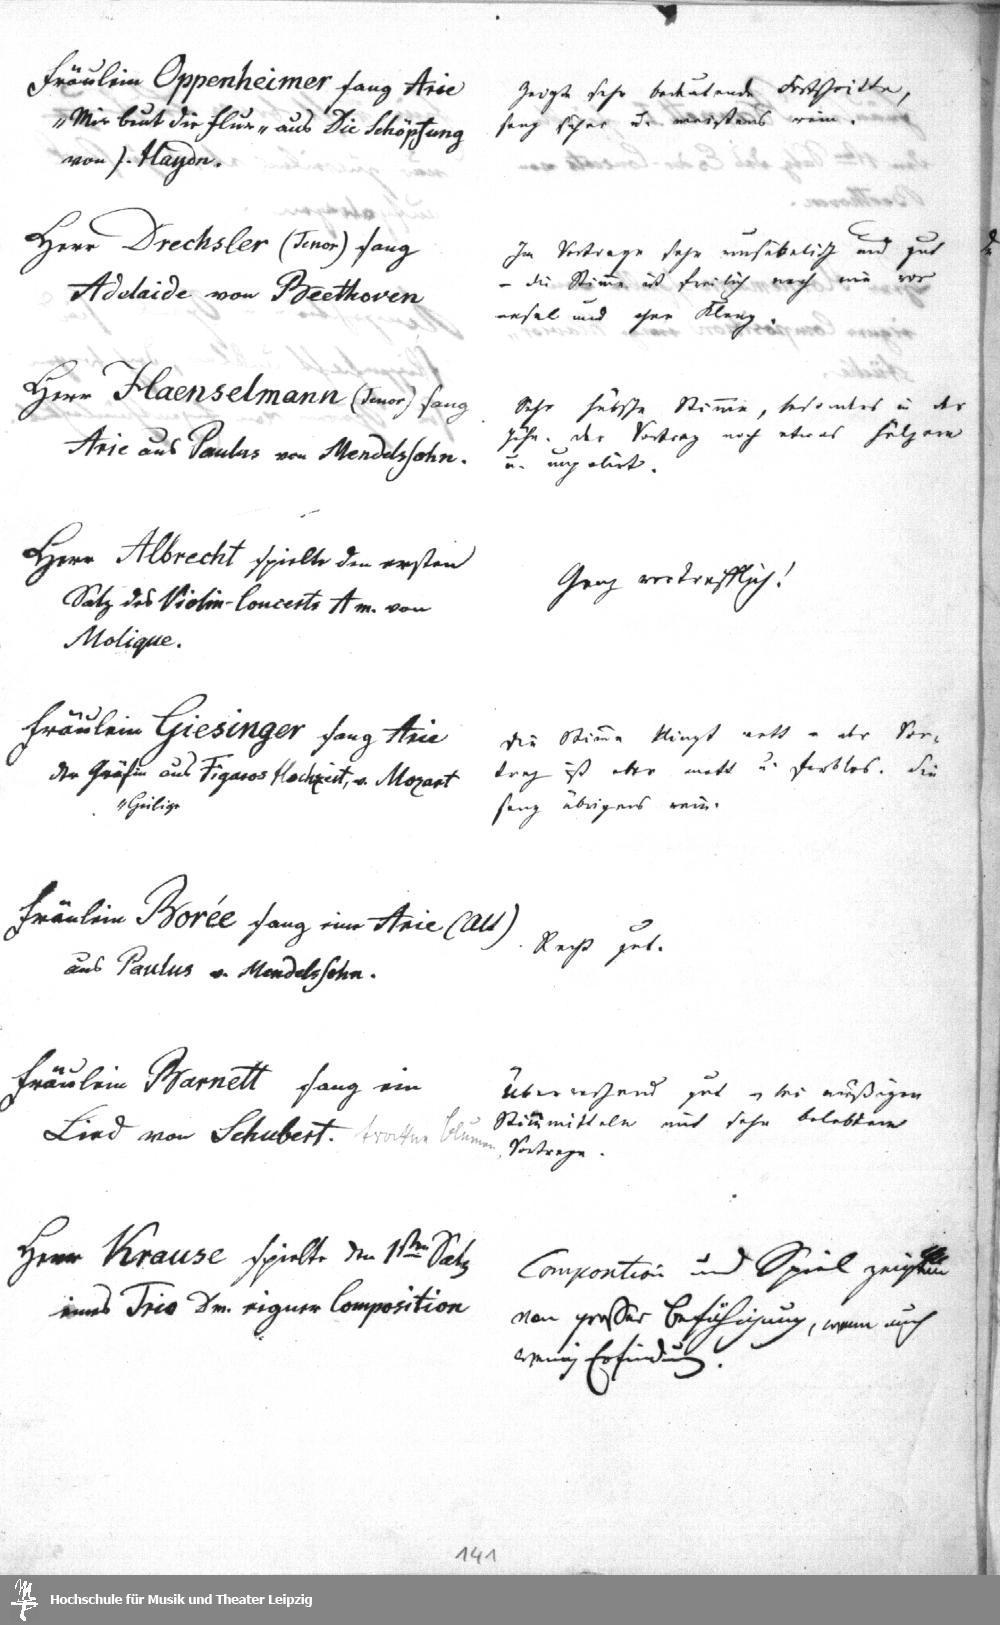 Fräulein Oppenheimer sang Arie
„Nun beut die Flur„ aus Die Schöpfung
von J. Haydn.
Zeigte sehr bedeutende Fortschritte,
sang sicher u. meistens rein.
Herr Drechsler (Tenor) sang
Adelaide von Beethoven
Im Vortrage sehr musikalisch und gut
– die Stimme ist freilich noch wie vor
und ohne Klang.
Herr Haenselmann (Tenor) sang
Arie aus Paulus von Mendelssohn.
Sehr hübsche Stimme, besonders in der
Höhe. der Vortrag noch etwas hölzern
u. unpolirt.
Herr Albrecht spielte den ersten
Satz des Violin-Concerts A m. von
Molique.
Ganz vortrefflich!
Fräulein Giesinger sang Arie
der Gräfin aus Figaros Hochzeit, v. Mozart
„Heilige
Die Stimme klingt nett – der Vor-
trag ist aber matt u. farblos. Sie
sang übrigens rein.
Fräulein Borée sang eine Arie (Alt)
aus Paulus v. Mendelssohn.
Recht gut.
Fräulein Barnett sang ein
Lied von Schubert. trockne Blumen
Überraschend gut – bei mäßigen
Stimmitteln mit sehr belebtem
Vortrage.
Herr Krause spielte den 1sten Satz
eines Trio D m. eigner Composition
Composition und Spiel zeigten
von grosser Befähigung, wenn auch
wenig Erfindung.
141
Hochschule für Musik und Theater Leipzig